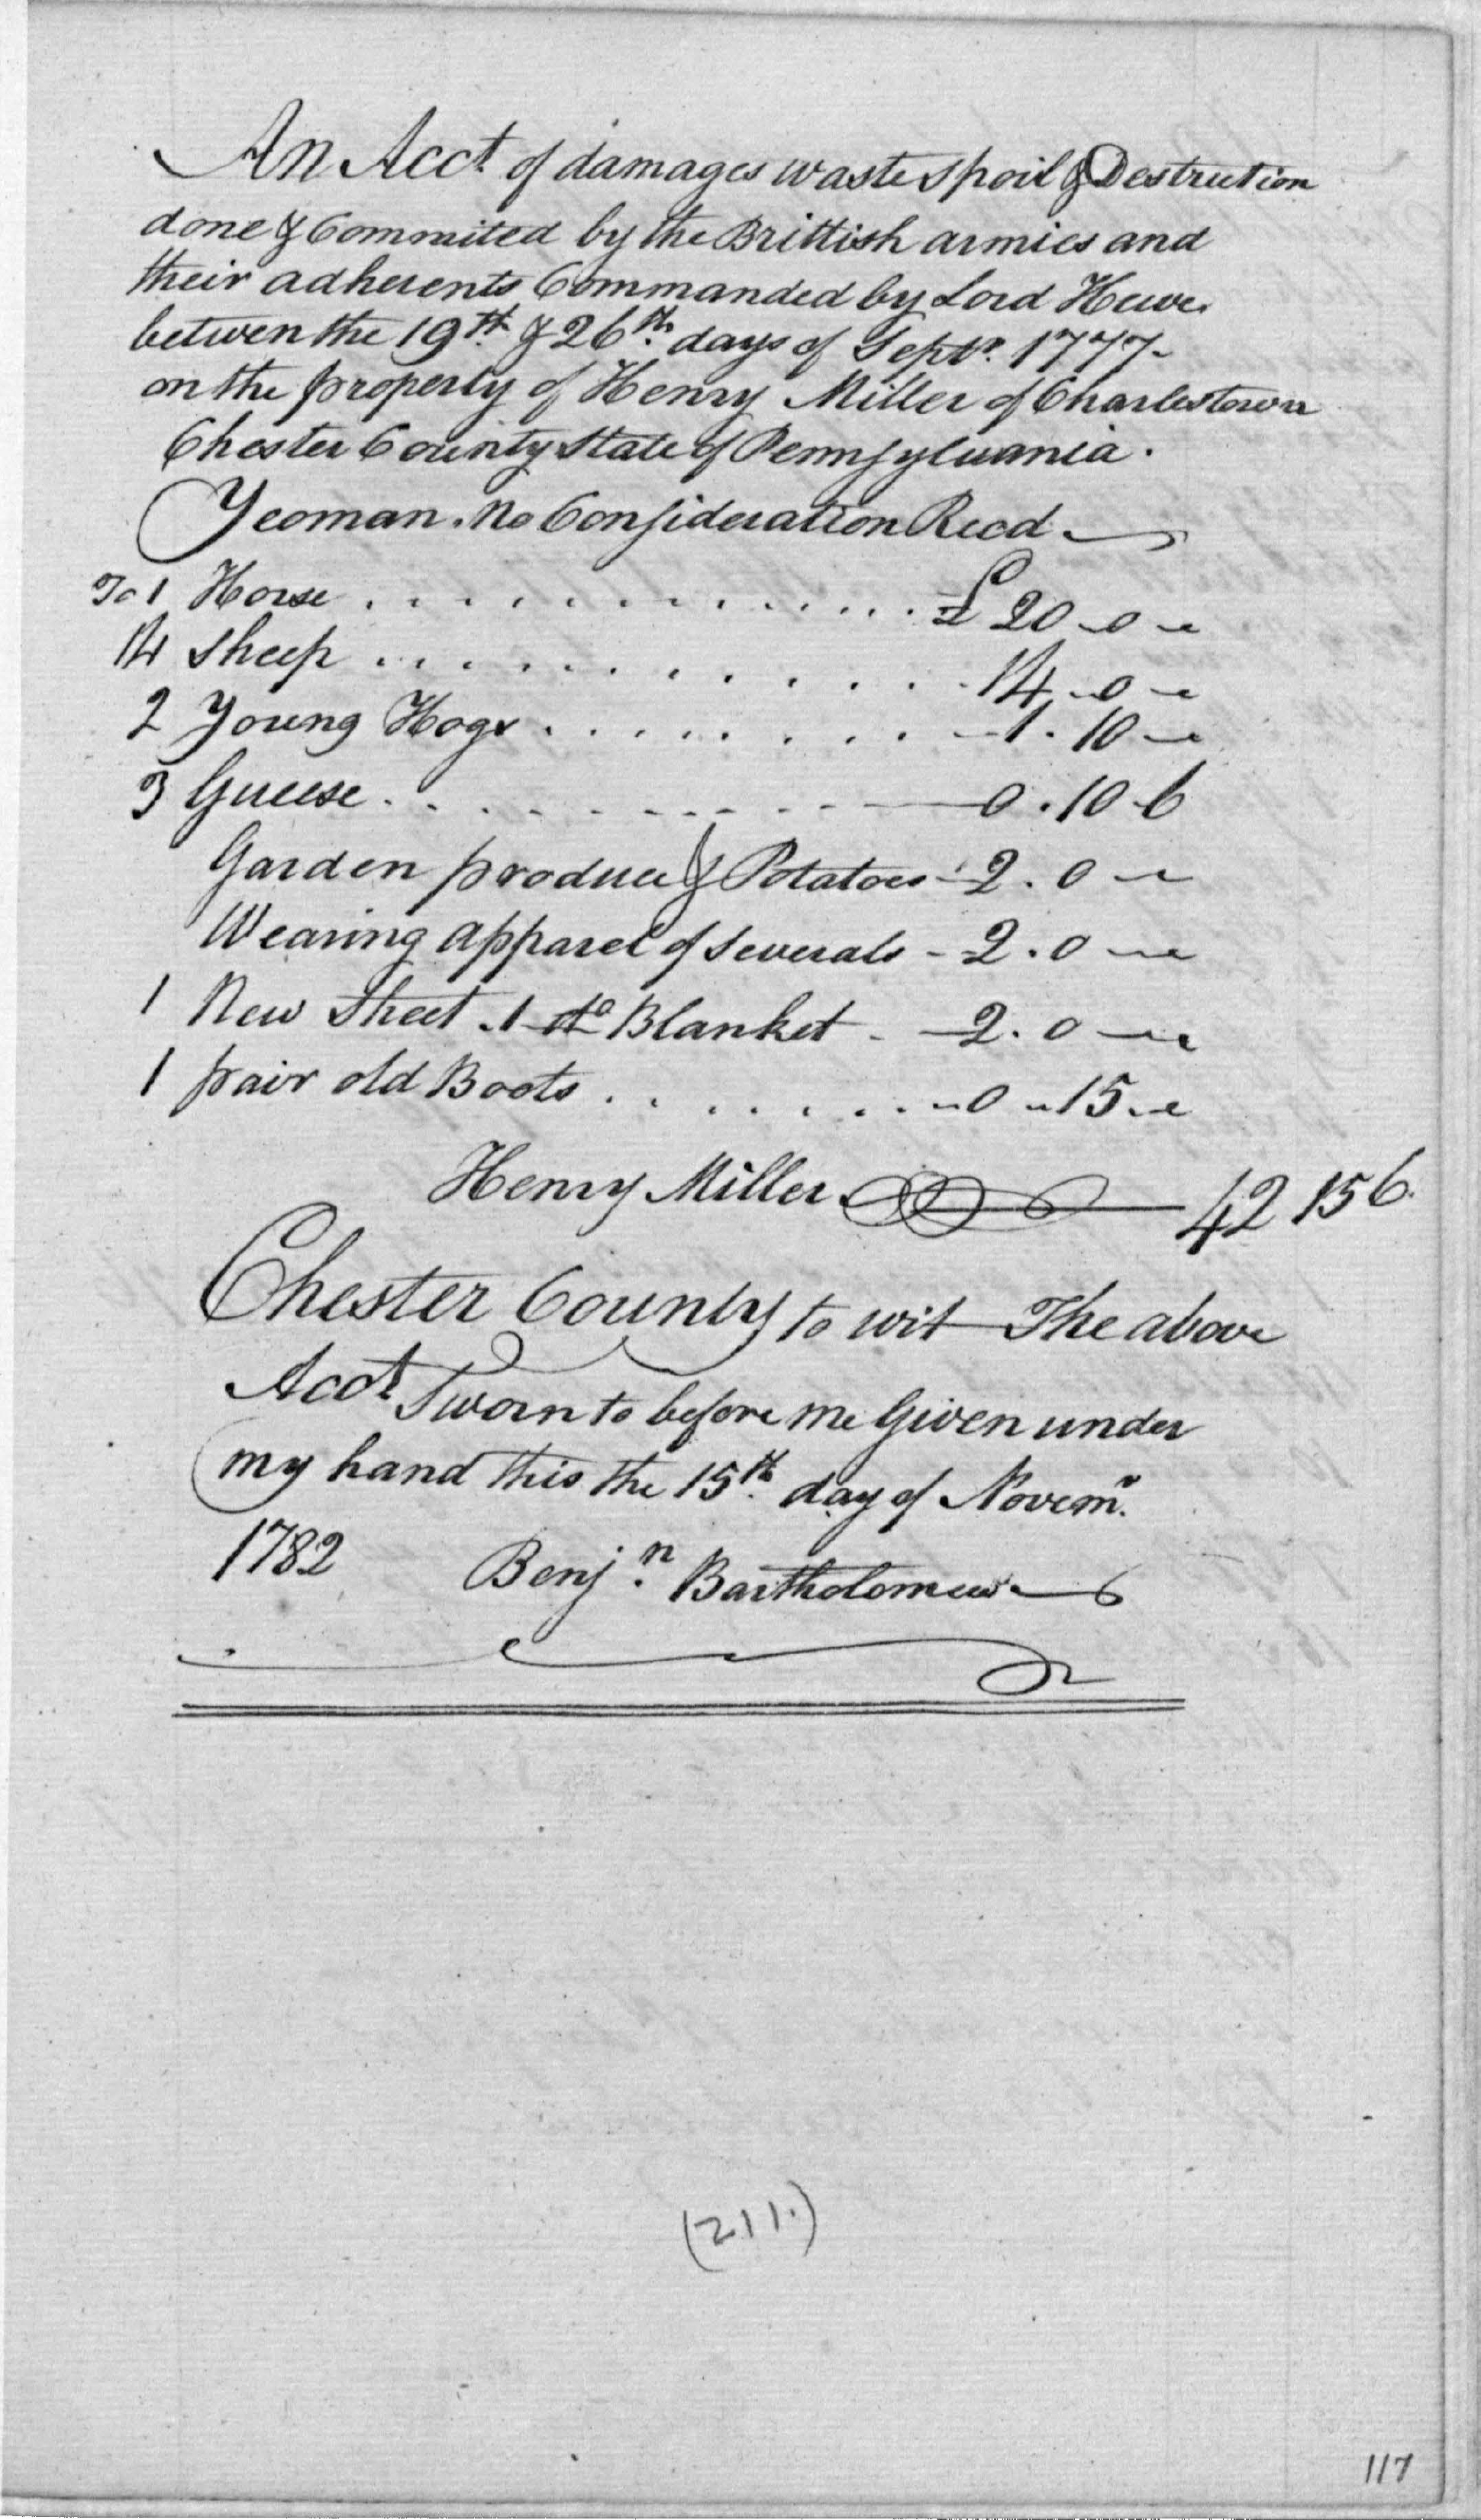 An Acct. of damages waste spoil & Destruction
done & Commited by the Brittish armies and
their adherents Commanded by Lord Huwe.
betwen the 19th. & 26th. days of Septr. 1777-
on the property of Henry Miller of Charlestown
Chester County State of Pennsylvania.
Yeoman. No Consideration Recd
To 1 Horse . . . . . . . . . . . . . . £ 20 - 0 -
14 Sheep . . . . . . . . . . . . 14 - 0 -
2 Young Hogs . . . . . . . . . - 1 . 10 -
3 Gueese . . . . . . . . . 0 . 10 - 6
Garden produce & Potatoes - 2 . 0 -
Wearing apparel of Severals - 2 . 0 -
1 New Sheet . 1 do Blanket - 2 . 0 -
1 pair old Boots . . . . . . . . 0 - 15 -
Henry Miller 42 15 6.
Chester County to wit - The above
Acct Sworn to before me Given under
my hand this the 15th. day of Novemr.
1782 Benjn. Bartholomew
(211.)
117